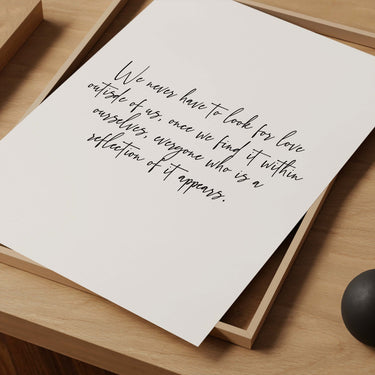 We never have to look for love
outside of us, once we find it within
ourselves, everyone who is a
reflection of it appears.